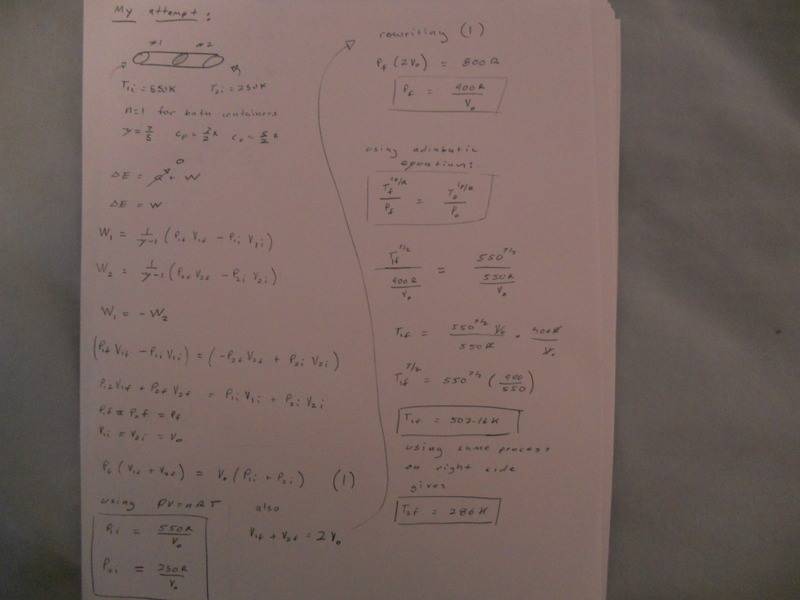 My attempt:
#1 #2
T₁ᵢ = 550K T₂ᵢ = 250K
n=1 for both containers
γ = 7/5 cₚ = 7/2 R cᵥ = 5/2 R
ΔE = Q + W
0
ΔE = W
W₁ = 1/(γ-1) (P₁f V₁f - P₁ᵢ V₁ᵢ)
W₂ = 1/(γ-1) (P₂f V₂f - P₂ᵢ V₂ᵢ)
W₁ = -W₂
(P₁f V₁f - P₁ᵢ V₁ᵢ) = (-P₂f V₂f + P₂ᵢ V₂ᵢ)
P₁f V₁f + P₂f V₂f = P₁ᵢ V₁ᵢ + P₂ᵢ V₂ᵢ
P₁f = P₂f = Pf
V₁ᵢ = V₂ᵢ = V₀
Pf (V₁f + V₂f) = V₀ (P₁ᵢ + P₂ᵢ) (1)
using PV=nRT
P₁ᵢ = 550R/V₀
P₂ᵢ = 250R/V₀
also
V₁f + V₂f = 2V₀
rewriting (1)
Pf (2V₀) = 800R
Pf = 400R/V₀
using adiabatic
equation:
Tf^(cp/R)/Pf = T₀^(cp/R)/P₀
T₁f^(7/2)/(400R/V₀) = 550^(7/2)/(550R/V₀)
T₁f = 550^(7/2) V₀/550R · 400R/V₀
T₁f^(7/2) = 550^(7/2) (400/550)
T₁f = 502.16K
using same process
on right side
gives
T₂f = 286K